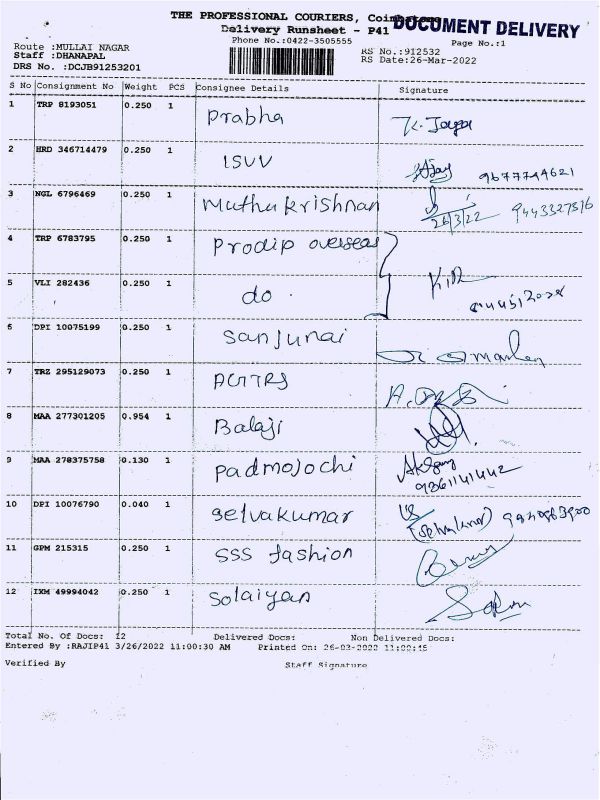 THE PROFESSIONAL COURIERS, Coimbatore
DOCUMENT DELIVERY
Delivery Runsheet - P41
Phone No.:0422-3505555
Page No.:1
Route :MULLAI NAGAR
RS No.:912532
Staff :DHANAPAL
RS Date:26-Mar-2022
DRS No. :DCJB91253201
S No Consignment No Weight PCS Consignee Details Signature
1 TRP 8193051 0.250 1 Prabha
2 HRD 346714479 0.250 1 ISUV 9677744621
3 NGL 6796469 0.250 1 Muthukrishnan 26/3/22 9443327516
4 TRP 6783795 0.250 1 Prodip overseas
5 VLI 282436 0.250 1 do
6 DPI 10075199 0.250 1 sanjunai
7 TRZ 295129073 0.250 1
8 MAA 277301205 0.954 1 Balaji
9 MAA 278375758 0.130 1 padmojochi
10 DPI 10076790 0.040 1 selvakumar
11 GPM 215315 0.250 1 SSS fashion
12 IXM 49994042 0.250 1 Solaiyan
Total No. Of Docs: 12 Delivered Docs: Non Delivered Docs:
Entered By :RAJIP41 3/26/2022 11:00:30 AM Printed On: 26-03-2022
Verified By Staff Signature